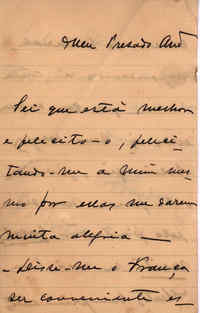 Meu Presado Am.º
Sei que está melhor
e felicito-o, felici-
tando-me a mim mes-
mo por ellas me darem
muita alegria —
- Disse-me o França
ser conveniente es-